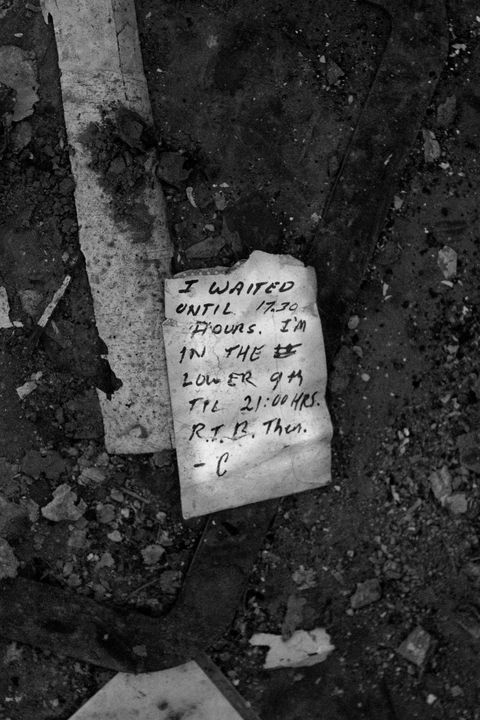 I WAITED
UNTIL 17.30
HOURS. I'M
IN THE
LOWER 9th
TIL 21:00 HRS.
R.T.B. Then.
- C